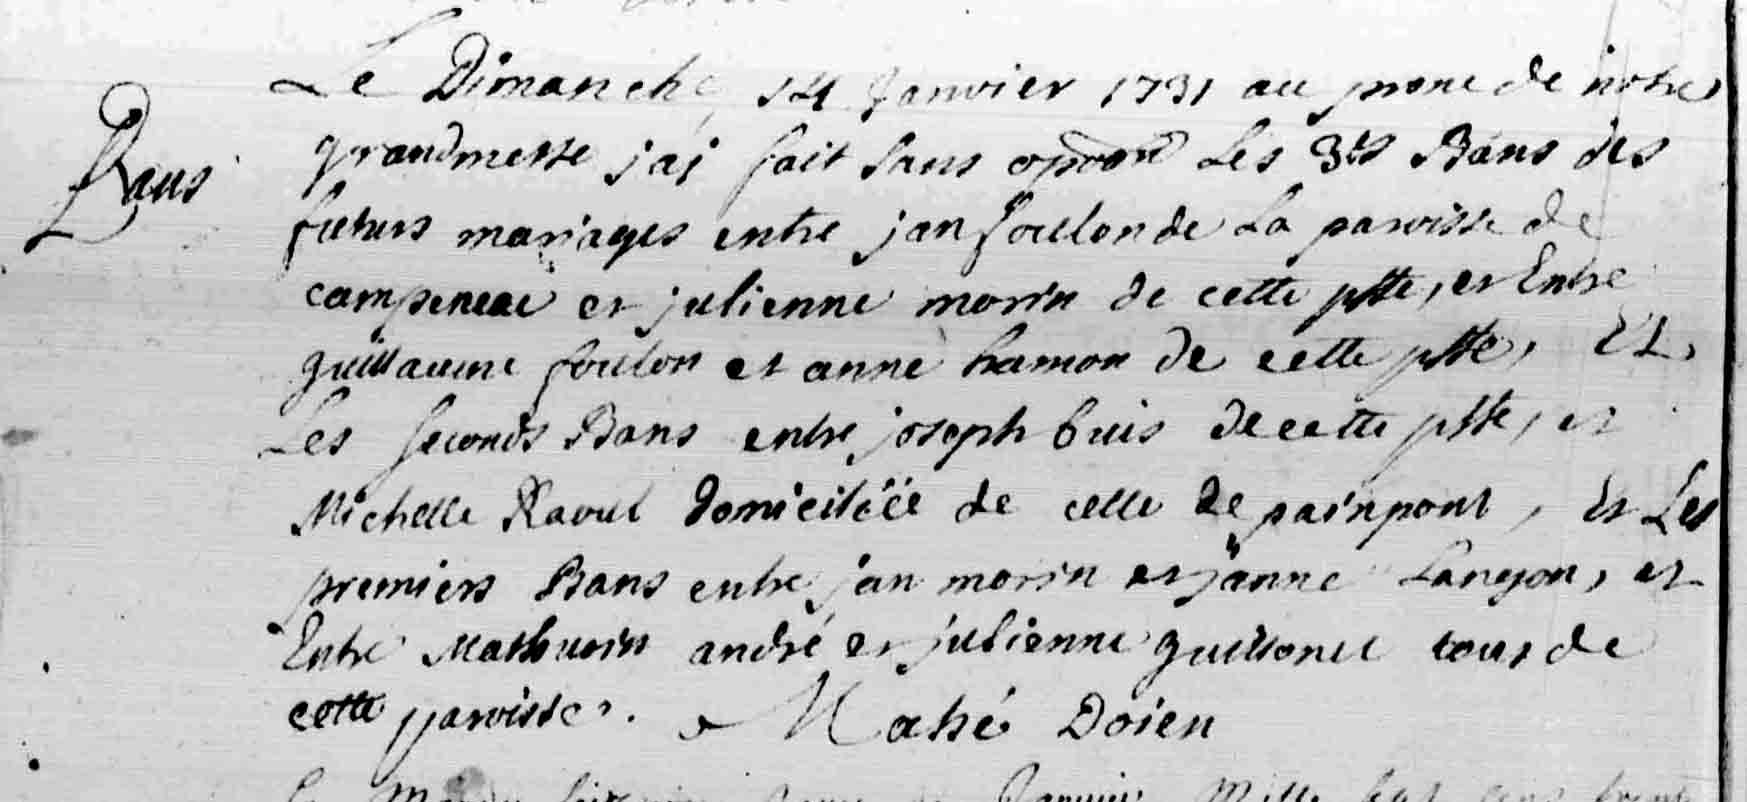 Le Dimanche 14 Janvier 1731 au prone de notre
Bans
grandmesse jaj fait sans oppoōn Les 3es Bans des
futurs mariages entre jan foulon de La paroisse de
campeneac et julienne morin de cette psse, et Entre
guillaume foulon et anne hamon de cette psse, Et
Les seconds Bans entre joseph buis de cette psse, et
Michelle Raoul domiciliéé de celle de painpont, Et Les
premiers Bans entre jan morin et janne Langon, et
Entre Mathurin andré et julienne guillouet tous de
cette paroisse. Mahé Doien
Janvier Mille sept cens trente